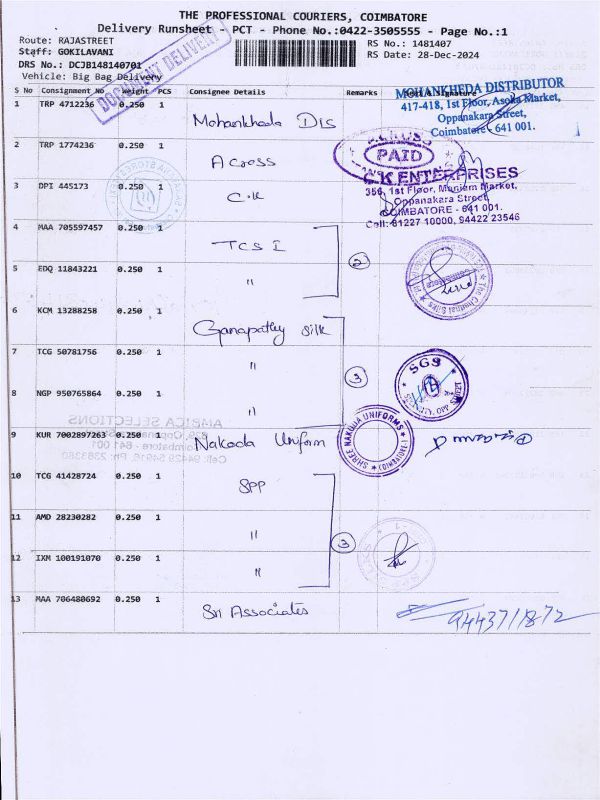 THE PROFESSIONAL COURIERS, COIMBATORE
Delivery Runsheet - PCT - Phone No.:0422-3505555 - Page No.:1
Route: RAJASTREET
RS No.: 1481407
Staff: GOKILAVANI
RS Date: 28-Dec-2024
DRS No.: DCJB148140701
Vehicle: Big Bag Delivery
DOCUMENT DELIVERY
S No Consignment No Weight PCS Consignee Details Remarks
MOHANKHEDA DISTRIBUTOR
417-418, 1st Floor, Asoka Market,
Oppanakara Street,
Coimbatore - 641 001.
1 TRP 4712236 0.250 1 Mohankheda Dis
2 TRP 1774236 0.250 1 Across
ACROSS
PAID
3 DPI 445173 0.250 1 C.K
C.K ENTERPRISES
356, 1st Floor, Maniam Market,
Oppanakara Street,
COIMBATORE - 641 001.
Cell: 81227 10000, 94422 23546
4 MAA 705597457 0.250 1 TCS I
2
5 EDQ 11843221 0.250 1 "
The Chennai Silks
Coimbatore
6 KCM 13288258 0.250 1 Ganapathy Silk
7 TCG 50781756 0.250 1 "
3
SGS
8 NGP 950765864 0.250 1 "
9 KUR 7002897263 0.250 1 Nakoda Uniform
SHREE NAKODA UNIFORMS
AMRICA SELECTIONS
10 TCG 41428724 0.250 1 SPP
11 AMD 28230282 0.250 1 "
3
12 IXM 100191070 0.250 1 "
13 MAA 706480692 0.250 1 Sri Associates
9443711872